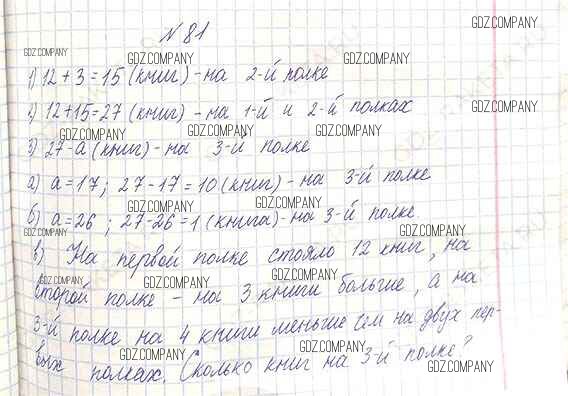 № 81
GDZ.COMPANY
GDZ.COMPANY GDZ.COMPANY
1) 12 + 3 = 15 (книг) - на 2-й полке
2) 12+15=27 (книг) - на 1-й и 2-й полках
GDZ.COMPANY
GDZ.COMPANY GDZ.COMPANY GDZ.COMPANY
3) 27-а (книг) - на 3-й полке
а) а=17; 27-17=10 (книг) - на 3-й полке
GDZ.COMPANY GDZ.COMPANY
б) а=26; 27-26=1 (книга) - на 3-й полке.
GDZ.COMPANY GDZ.COMPANY
в) На первой полке стояло 12 книг, на
GDZ.COMPANY GDZ.COMPANY GDZ.COMPANY GDZ.COMPANY
второй полке - на 3 книги больше, а на
3-й полке на 4 книги меньше чем на двух пер-
GDZ.COMPANY GDZ.COMPANY GDZ.COMPANY
вых полках. Сколько книг на 3-й полке?